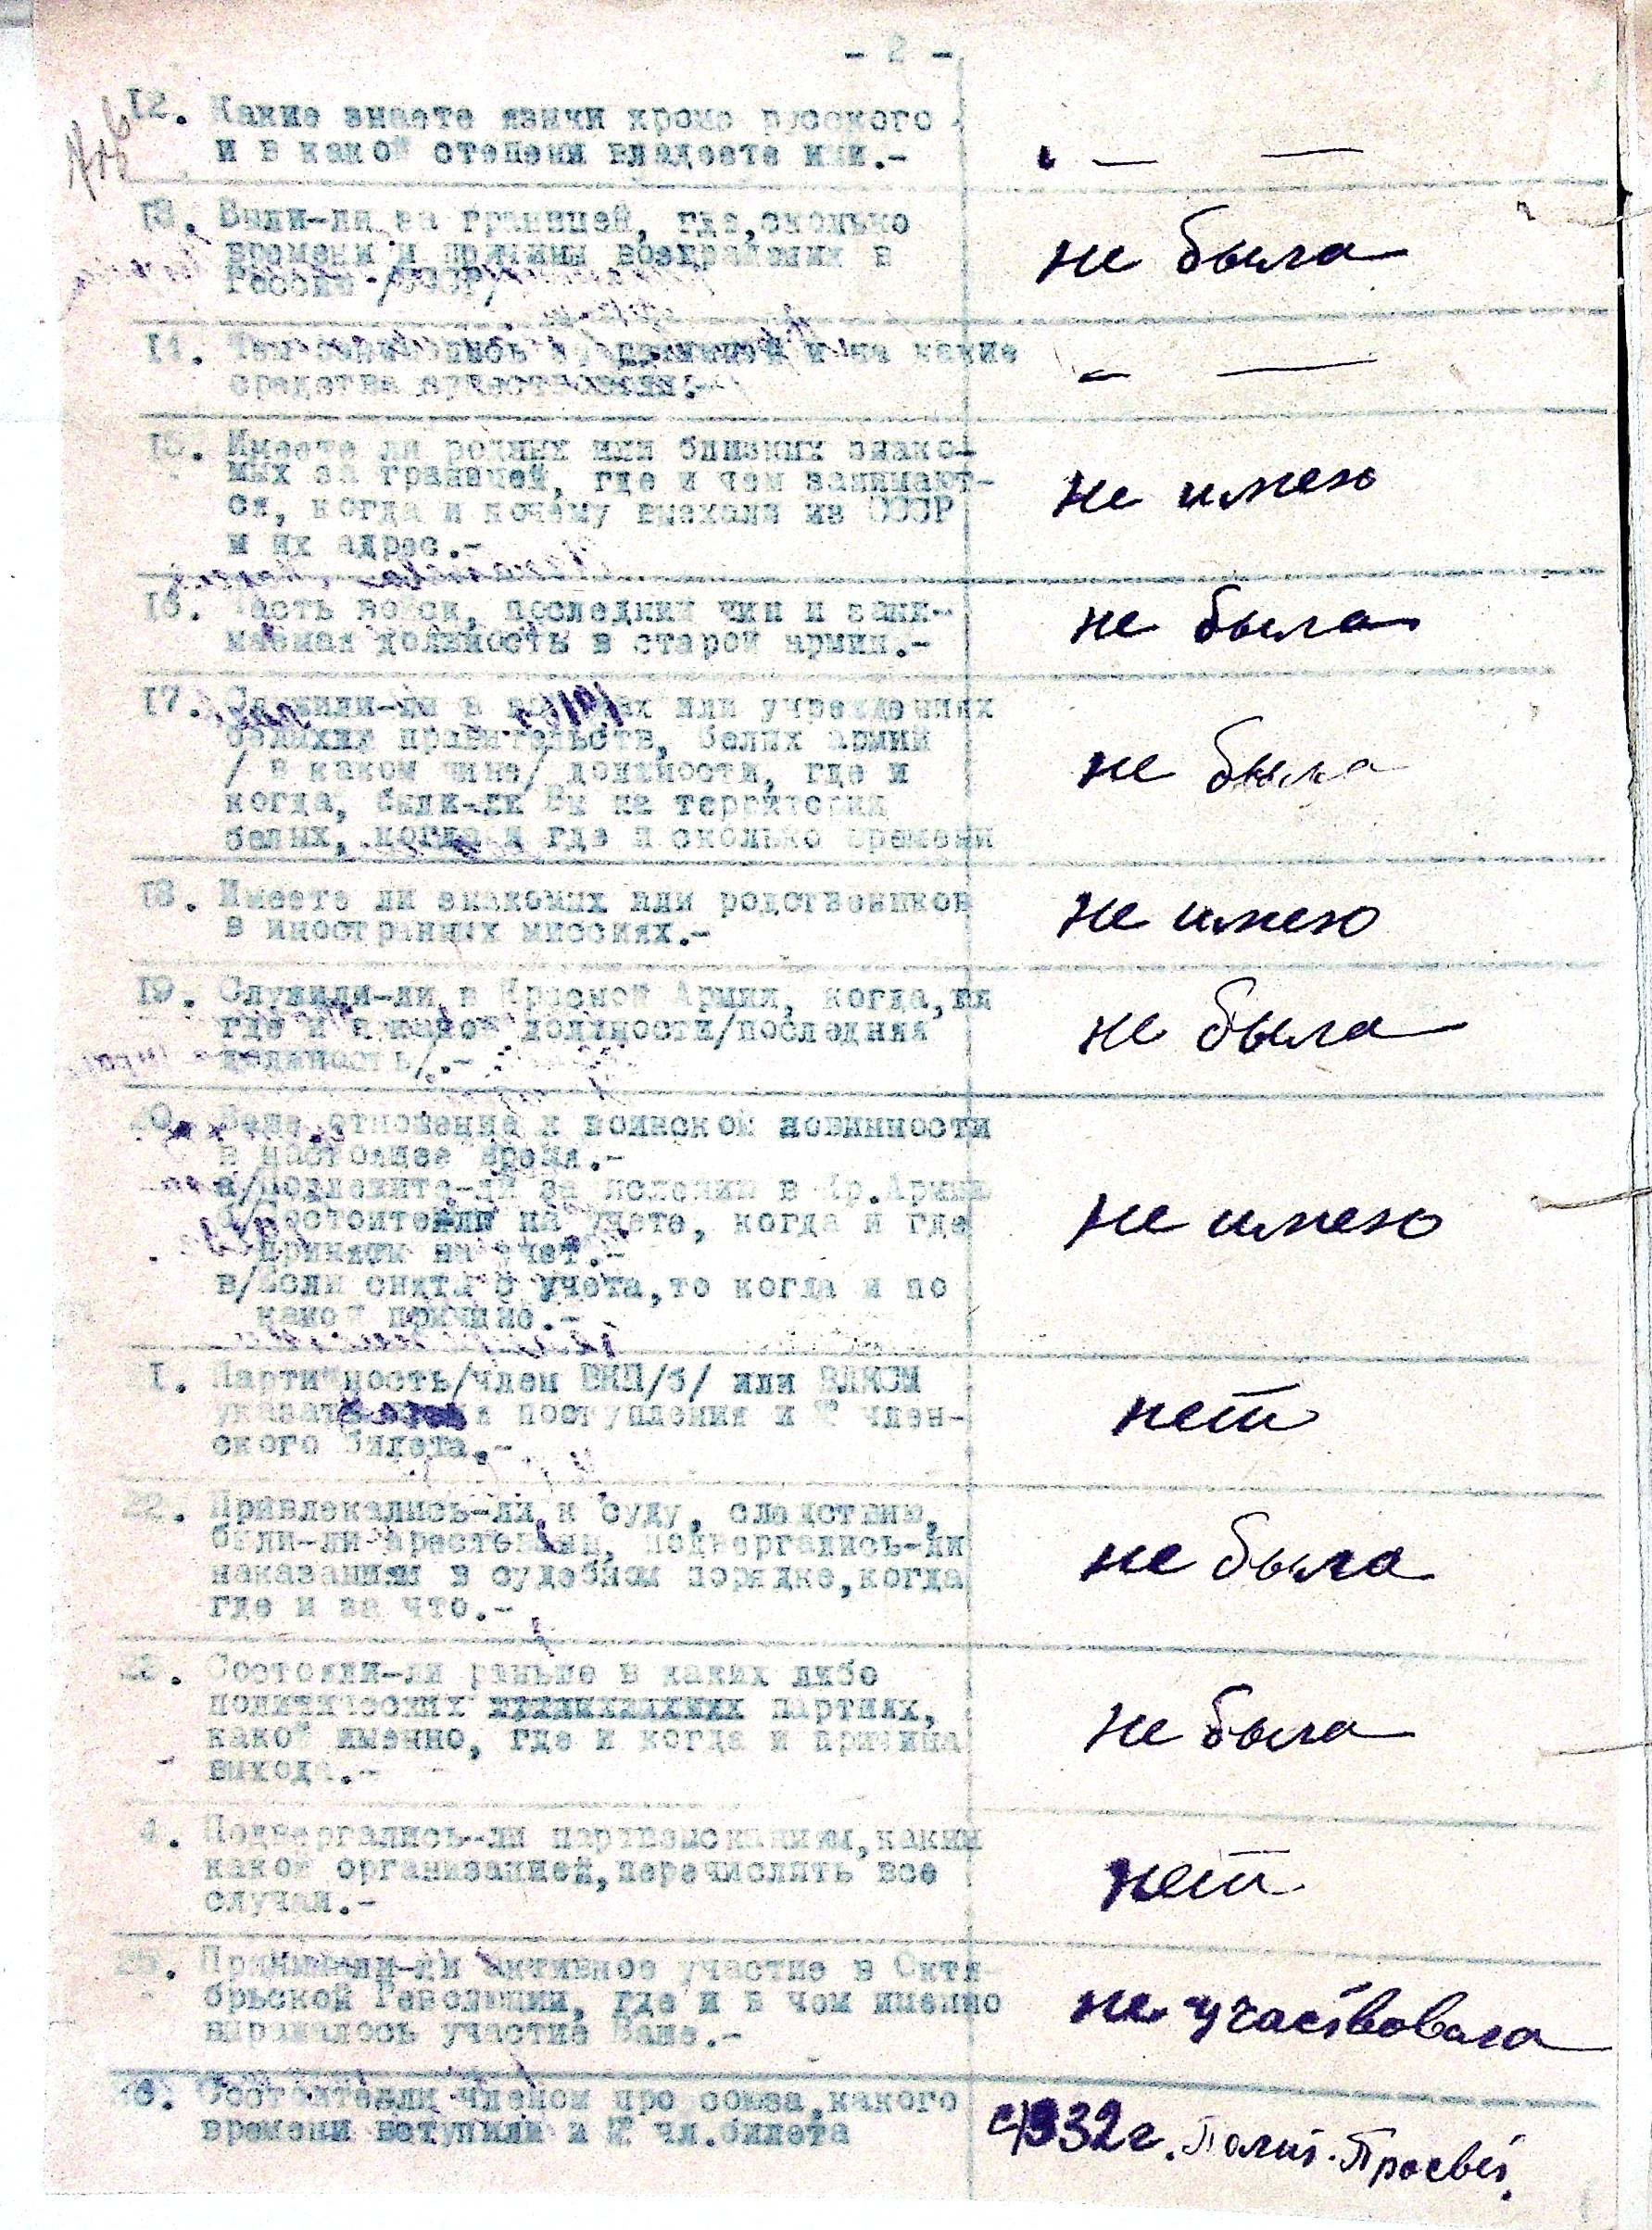 - 2 -
12. Какие знаете языки кроме русского
и в какой степени владеете ими.-
— —
13. Были-ли за границей, где,сколько
времени и причины возвращения в
Россию /СССР/
не была
14. Чем занимались за границей и на какие
средства существовали.-
— —
15. Имеете ли родных или близких знако-
мых за границей, где и чем занимают-
ся, когда и почему выехали из СССР
и их адрес.-
не имею
16. Часть войск, последний чин и зани-
маемая должность в старой армии.-
не была
17. Служили-ли в войсках или учреждениях
правительств, белых армий
/ в каком чине/ должности, где и
когда, были-ли Вы на территории
белых, когда и где и сколько времени
не была
18. Имеете ли знакомых или родственников
в иностранных миссиях.-
не имею
19. Служили-ли в Красной Армии, когда,
где и в какой должности/последняя
должность/.-
не была
20. Ваше отношение к воинской повинности
в настоящее время.-
а/Подлежите-ли в Кр.Армию
б/Состоите-ли на учете, когда и где
приняты на учет.-
в/Если сняты с учета,то когда и по
какой причине.-
не имею
1. Партийность/член ВКП/б/ или ВЛКСМ
указать поступления и № член-
ского билета.-
нет
22. Привлекались-ли к суду, следствию,
были-ли арестованы, подвергались-ли
наказаниям в судебном порядке,когда
где и за что.-
не была
23. Состояли-ли раньше в каких либо
политических партиях,
какой именно, где и когда и причина
выхода.-
не была
4. Подвергались-ли партвзысканиям,каким
какой организацией,перечислить все
случаи.-
нет
25. Принимали-ли активное участие в Октя-
брьской Революции, где и в чем именно
выражалось участие Ваше.-
не участвовала
26. Состоите-ли членом про союза,какого
времени вступили и № чл.билета
с 1932 г. Полит-Просвет.